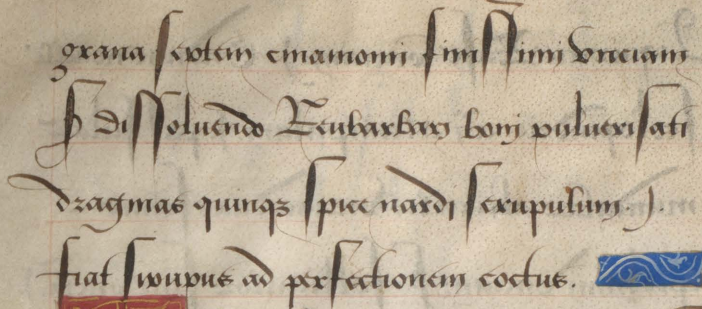 grana septem cinamomi finissimi vnciam
ß dissoluendo Reubarbarj bonj puluerisati
dragmas quinqȝ spice nardi scrupulum j
fiat sirupus ad perfectionem coctus.